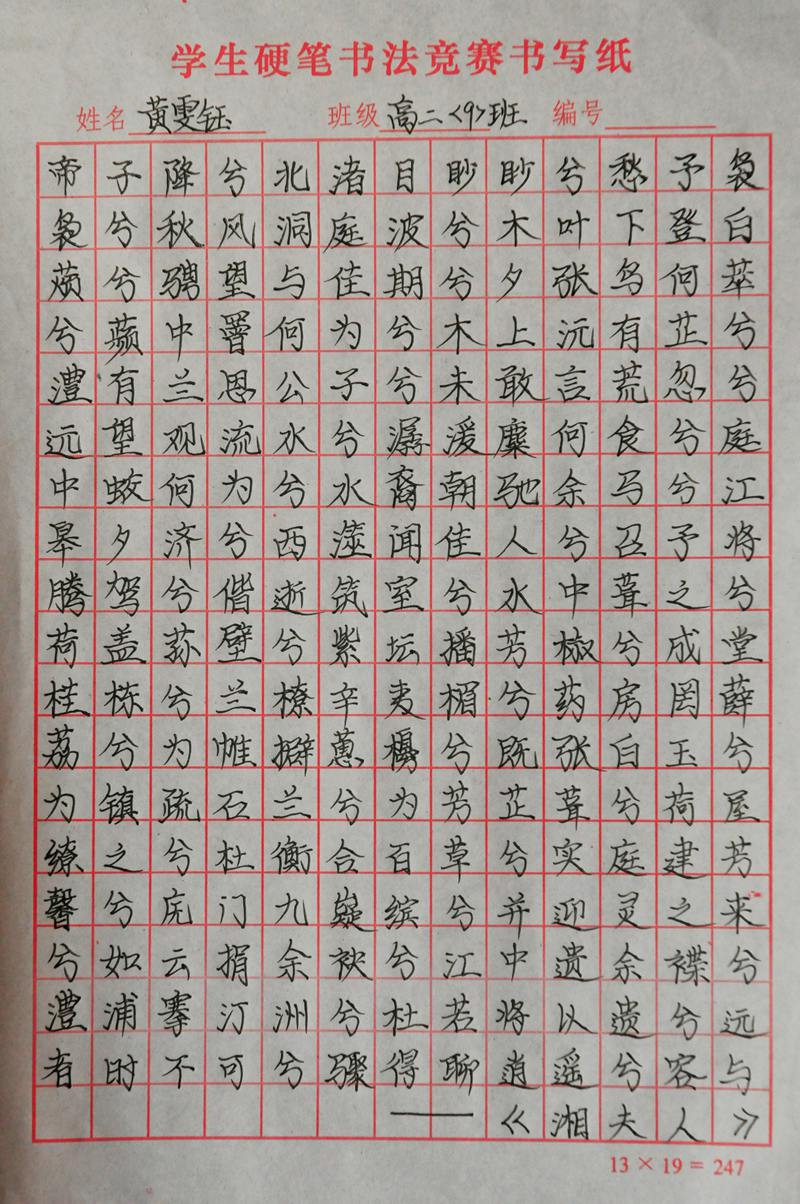 学生硬笔书法竞赛书写纸
姓名 黄雯钰 班级 高二<9>班 编号
帝子降兮北渚目眇眇兮愁予袅
袅兮秋风洞庭波兮木叶下登白
薠兮骋望与佳期兮夕张鸟何萃
兮蘋中罾何为兮木上沅有芷兮
澧有兰思公子兮未敢言荒忽兮
远望观流水兮潺湲麋何食兮庭
中蛟何为兮水裔朝驰余马兮江
皋夕济兮西澨闻佳人兮召予将
腾驾兮偕逝筑室兮水中葺之兮
荷盖荪壁兮紫坛播芳椒兮成堂
桂栋兮兰橑辛夷楣兮药房罔薜
荔兮为帷擗蕙櫋兮既张白玉兮
为镇疏石兰兮为芳芷葺兮荷屋
缭之兮杜衡合百草兮实庭建芳
馨兮庑门九嶷缤兮并迎灵之来
兮如云捐余袂兮江中遗余褋兮
澧浦搴汀洲兮杜若将以遗兮远
者时不可兮骤得聊逍遥兮容与
——《湘夫人》
13×19=247